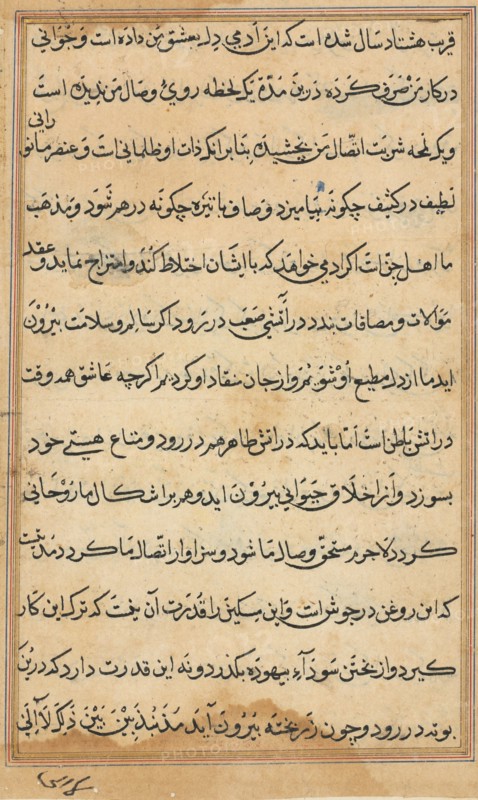 قریب هشتاد سال شده است که این آدمی دل بعشق من داده است و جوانی
در کار من صرف کرده درین مدّة یک لحظه روی وصال من ندیده است
و یک لمحه شربت اتصال من نچشیده بنا برآنکه ذات او ظلمانی است و عنصر ما نورانی
لطیف در کثیف چکونه بیامیزد و صاف با تیره چکونه در هم شود و بمذهب
ما اهل جنّات اکر ادمی خواهد که با ایشان اختلاط کند و امتزاج نماید و عقد
موالات و مصافات بندد در آتشی صعب در رود اکر سالم و سلامت بیرون
اید ما از دل مطیع او شویم و از جان منقاد او کردیم اکرچه عاشق همه وقت
در اتش باطن است امّا باید که در اتش ظاهر هم در رود و متاع هستی خود
بسوزد و از اخلاق حیوانی بیرون اید و هم براشکال ما روحانی
کردد لاجرم مستحق وصال ما شود و سزاوار اتصال ما کردد مدتیست
که این روغن در جوش است و این مسکین را قدرت آن نیست که ترک این کار
کیرد و از پختن سودآء بیهوده بکذرد و نه این قدرت دارد که درین
بوته در رود و چون زر پخته بیرون آید مُذَبْذَبِینَ بَیْنَ ذٰلِکَ لَا اِلَی